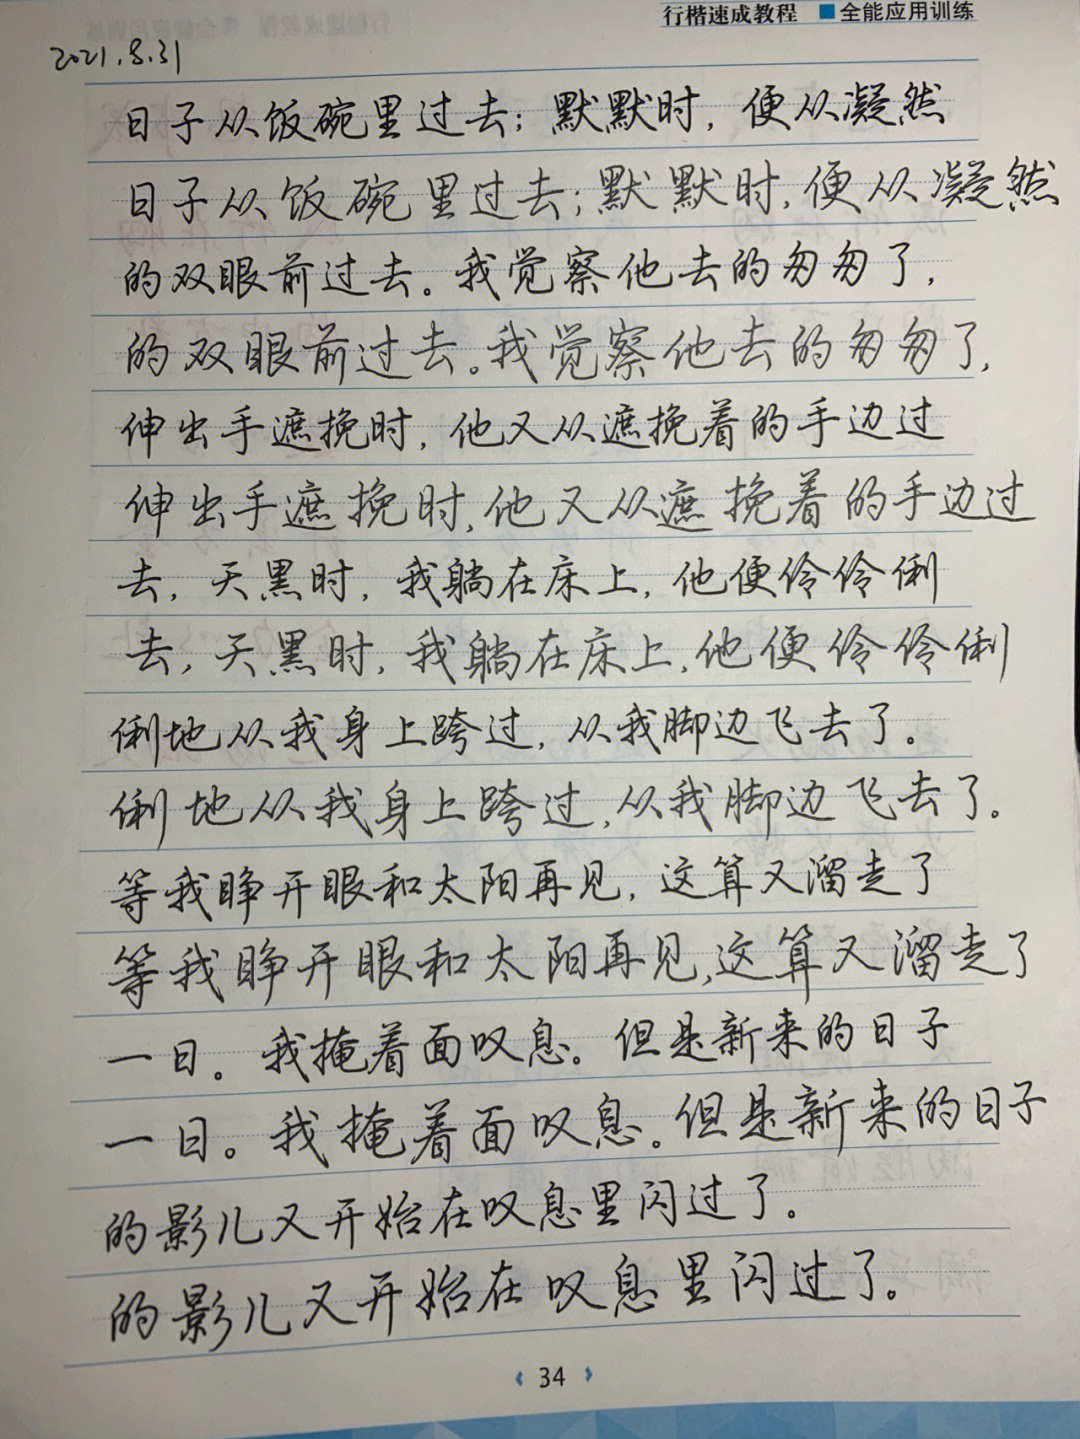 行楷速成教程 ■全能应用训练
2021.8.31
日子从饭碗里过去；默默时，便从凝然
日子从饭碗里过去；默默时，便从凝然
的双眼前过去。我觉察他去的匆匆了，
的双眼前过去。我觉察他去的匆匆了，
伸出手遮挽时，他又从遮挽着的手边过
伸出手遮挽时，他又从遮挽着的手边过
去，天黑时，我躺在床上，他便伶伶俐
去，天黑时，我躺在床上，他便伶伶俐
俐地从我身上跨过，从我脚边飞去了。
俐地从我身上跨过，从我脚边飞去了。
等我睁开眼和太阳再见，这算又溜走了
等我睁开眼和太阳再见，这算又溜走了
一日。我掩着面叹息。但是新来的日子
一日。我掩着面叹息。但是新来的日子
的影儿又开始在叹息里闪过了。
的影儿又开始在叹息里闪过了。
34